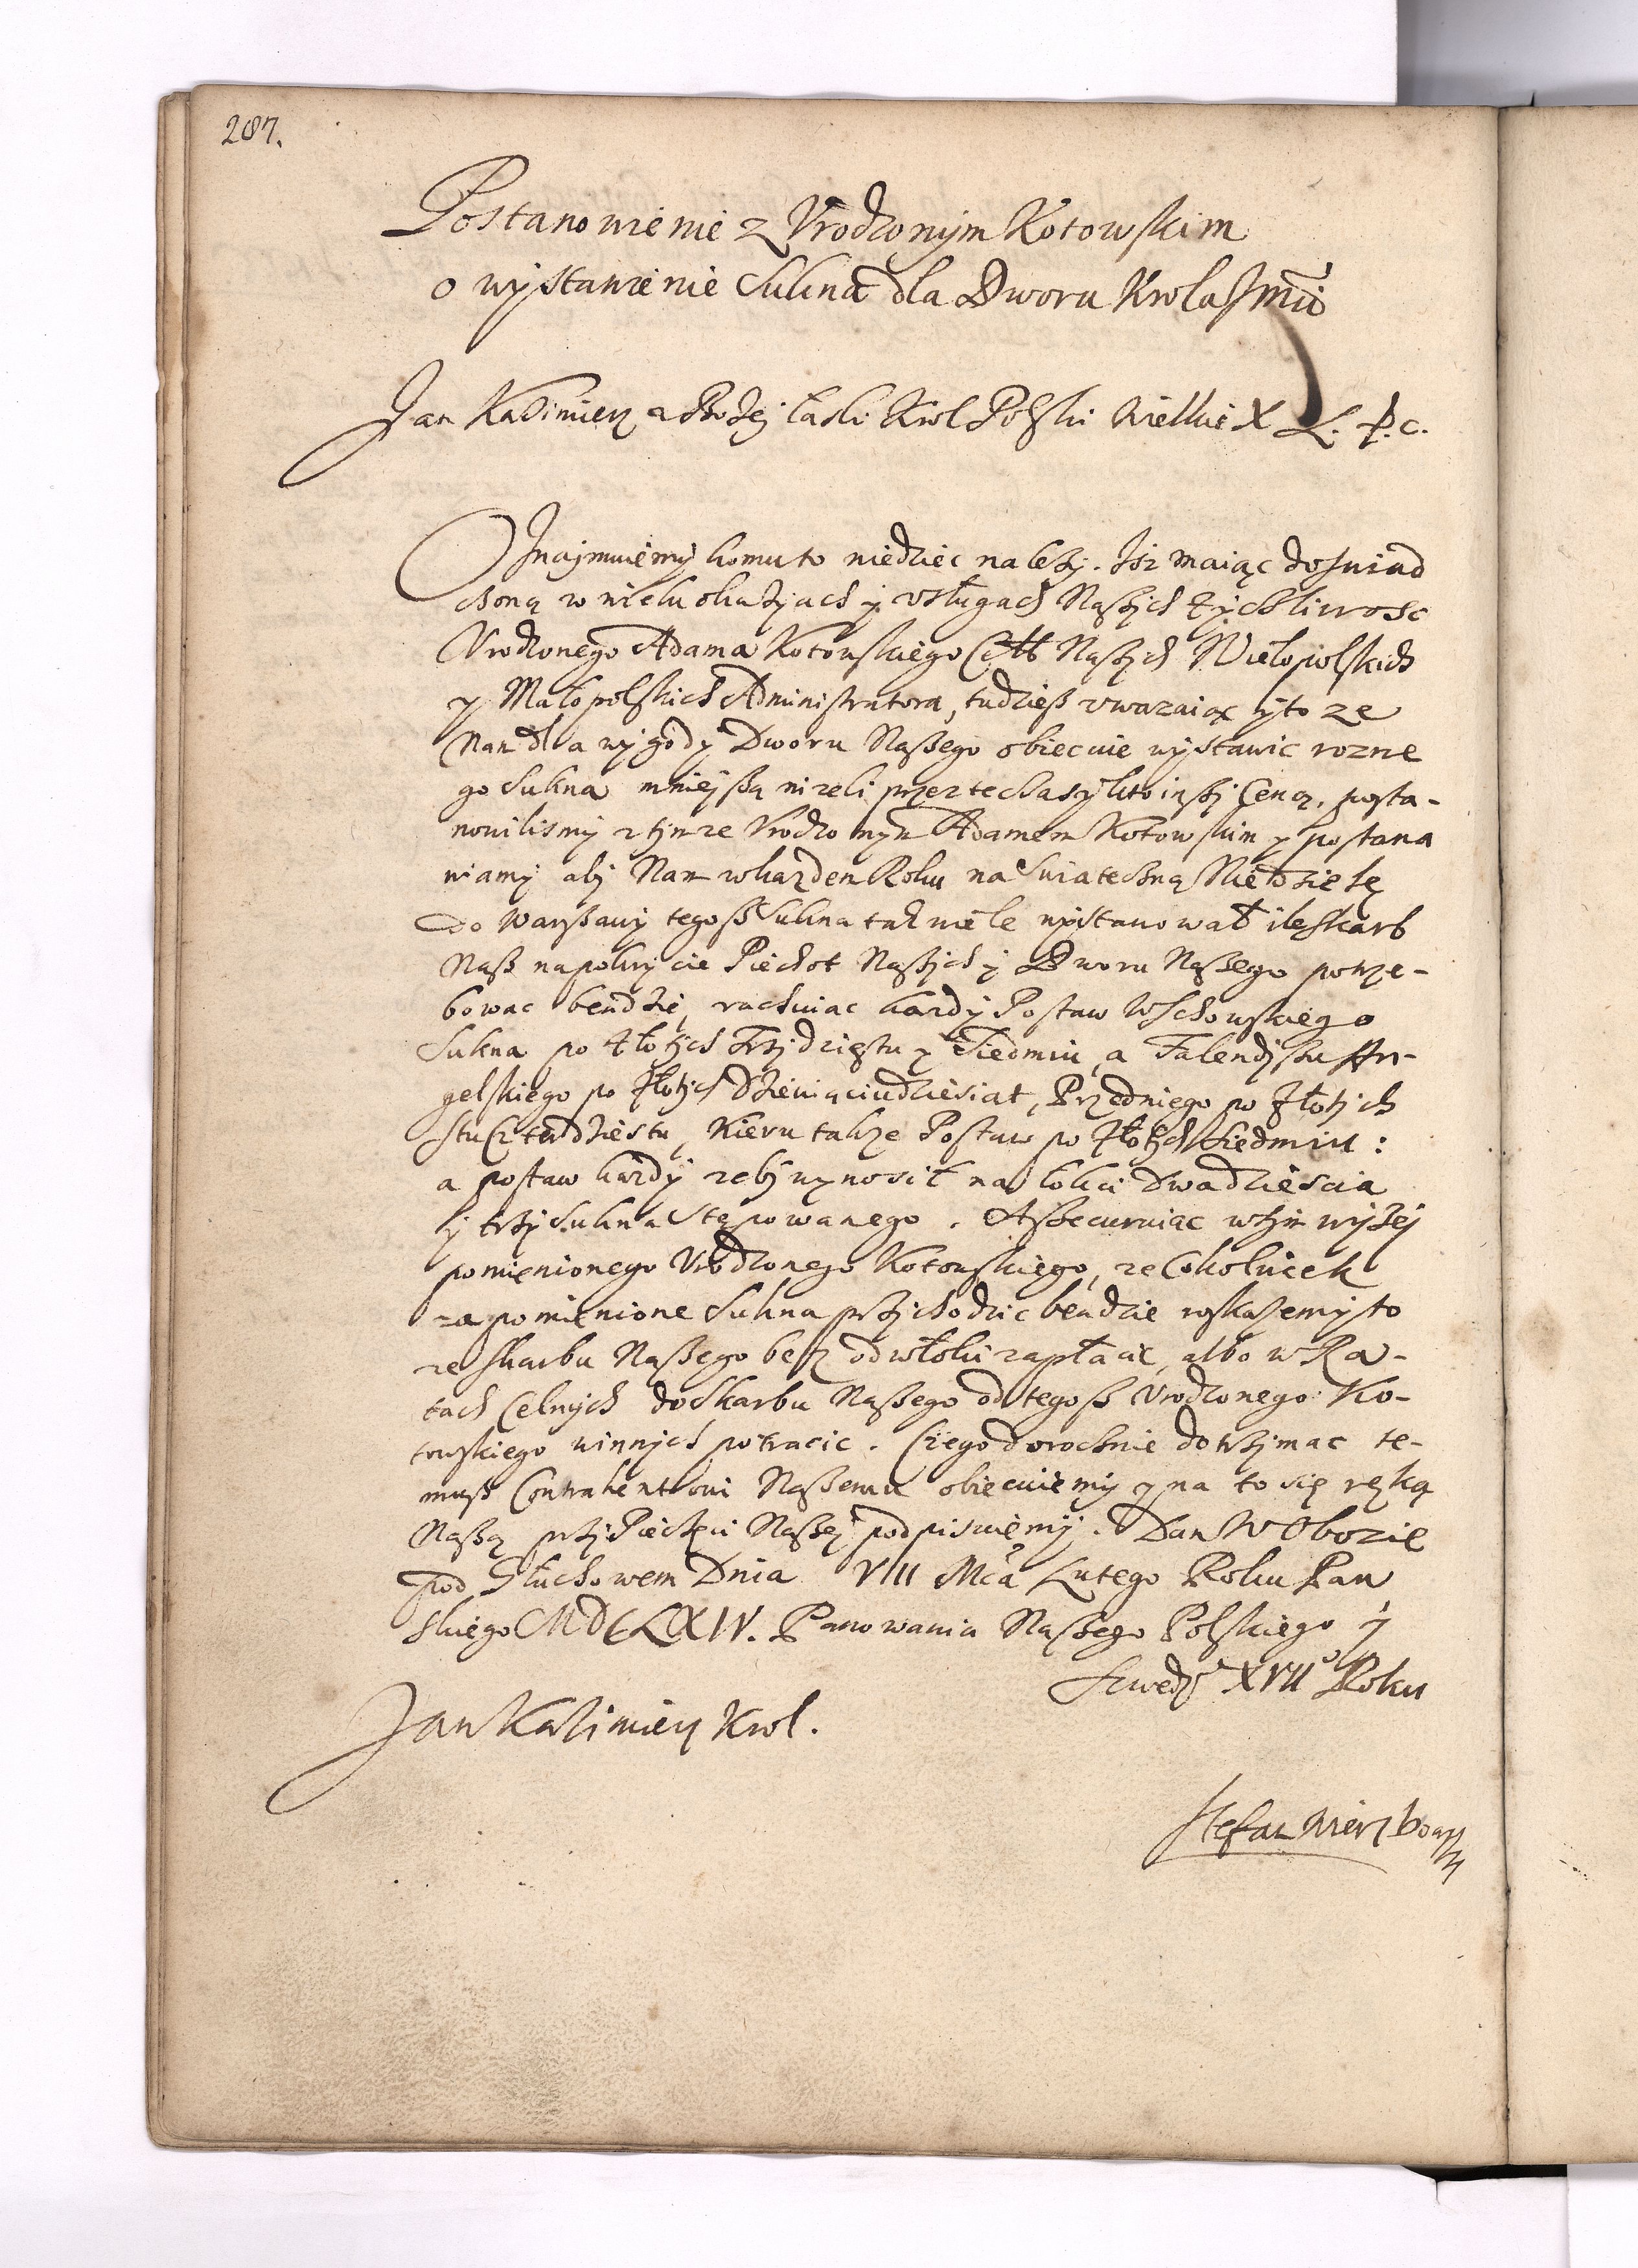 287.
Postanowienie z Vrodzonym Kotowskim
o wystawienie Sukna dla Dworu Krola Jmći
Jan Kazimierz z Bożey łaski Krol Polski Wielkie X L. P. c.
Oznajmuiemy komu to wiedziec należy. Isz maiąc doswiad
czoną w wielu okazyach y vsługach Naszych życzliwosc
Vrodzonego Adama Kotowskiego Cełł Naszych Wielopolskich
y Małopolskich Administratora, tudziesz vwazaiąc yto ze
Nam dla wygody Dworu Naszego obiecuie wystawic rozne
go Sukna mnieyszą nizeli przez te czasy kto inszy Ceną, posta-
nowilismy z tymze Vrodzonym Adamem Kotowskim y postana
wiamy aby Nam w kazdem Roku na Swiateczną Niedzielę
do Warszawy tegosz Sukna tak wiele wystawował ile Skarb
Nasz na pokrycie Piechot Naszych y Dworu Naszego potrze-
bowac bendzie, rachuiac kazdy Postaw Wschowskiego
Sukna po złotych Trzydziestu y Siedmiu, a Falendyszu An-
gelskiego po złotych Dziewiąciudziesiat, Przedniego po złotych
Stu Czterdziestu, Kieru takze Postaw po złotych Siedmiu :
a postaw kazdy zeby wynosił na łokci Dwadziescia
y trzy Sukna Stępowanego. Assecuruiac w tym wyżey
pomienionego Vrodzonego Kotowskiego, ze Cokolwiek
za pomienione Sukna przychodzic bendzie roskażemy to
ze Skarbu Naszego besz odwłoki zapłacic, albo w Ra-
tach Celnych do Skarbu Naszego od tegosz Vrodzonego Ko-
towskiego winnych potracic. Czego dorocznie dotrzymac te-
musz Contrahentowi Naszemu obiecuiemy y na to się ręką
Naszą przy Pieczęci Naszey podpisuiemy. Dan W Obozie
pod Głuchowem Dnia VIII Mca Lutego Roku Pan
skiego MDCLXIV. Panowania Naszego Polskiego y
Szwedz° XVII° Roku
Jan Kazimierz Krol.
Stefan